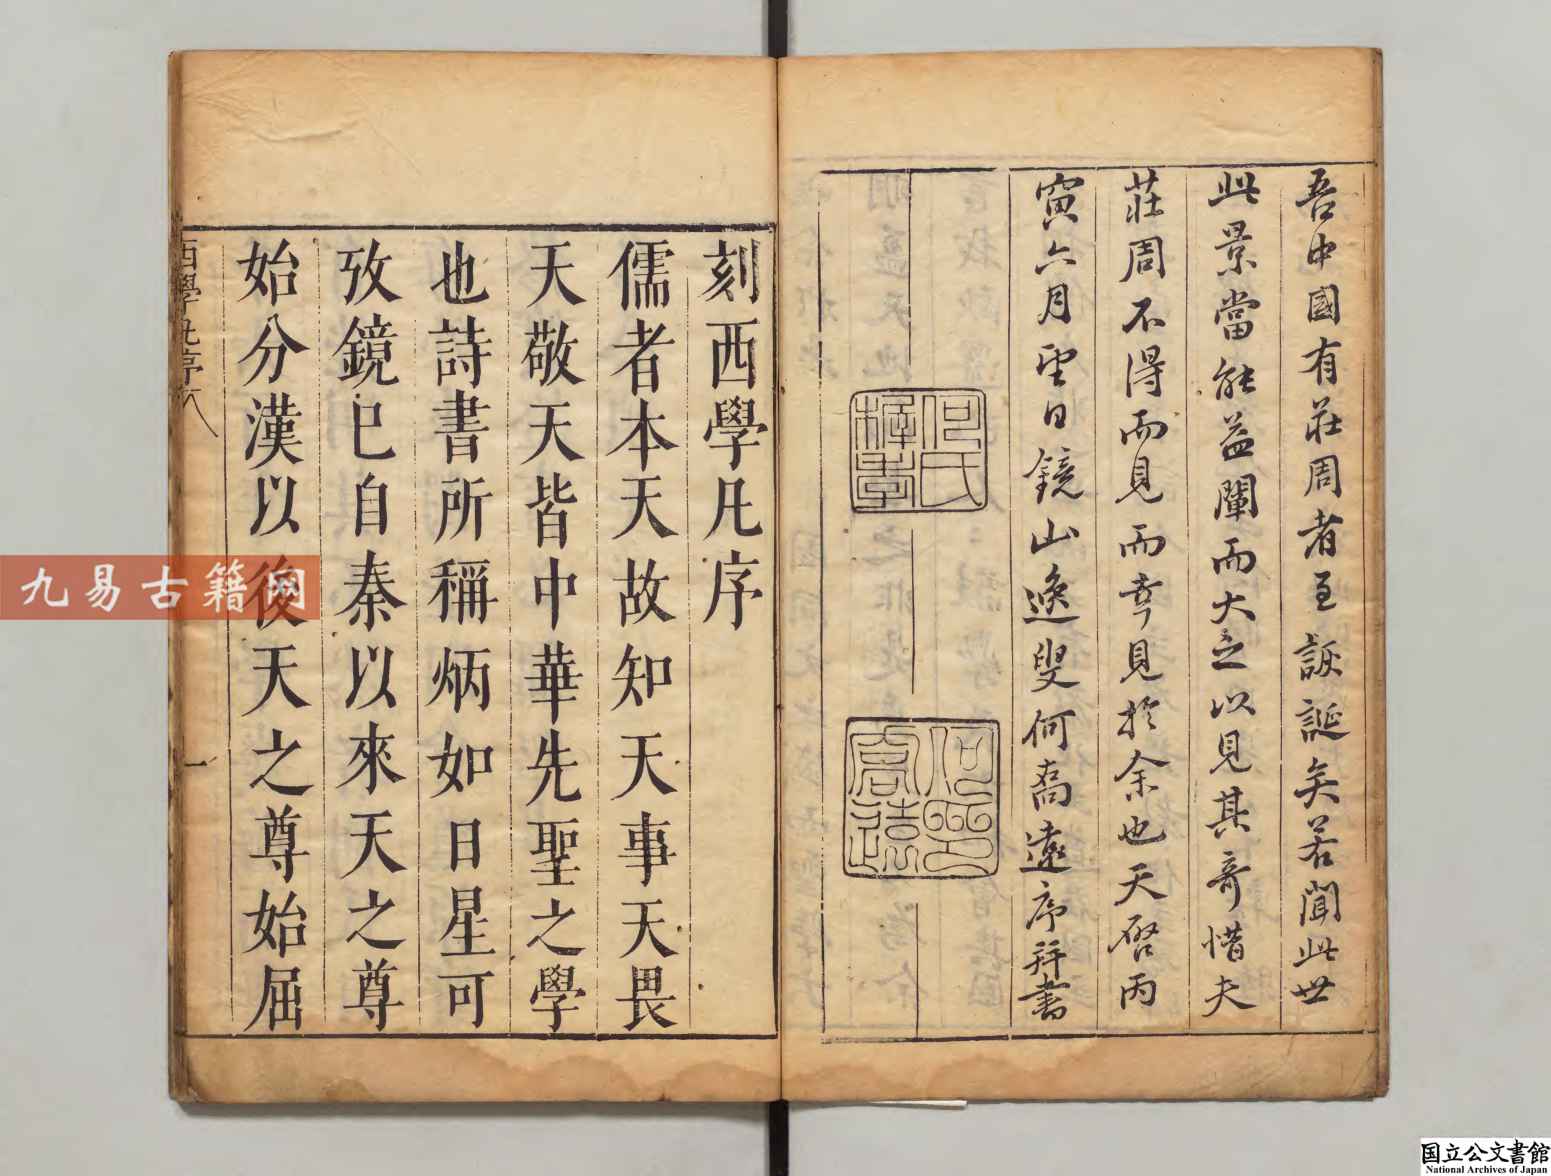 吾中國有莊周者至詼誕矣若聞此世
此景當能益闡而大之以見其奇惜夫
莊周不得而見而幸見於余也天啓丙
寅六月望日鏡山逸叟何喬遠序并書
何氏
穉孝
何喬遠印
刻西學凡序
儒者本天故知天事天畏
天敬天皆中華先聖之學
也詩書所稱炳如日星可
攷鏡已自秦以來天之尊
始分漢以後天之尊始屈
西學凡序
一
九易古籍网
国立公文書館
National Archives of Japan